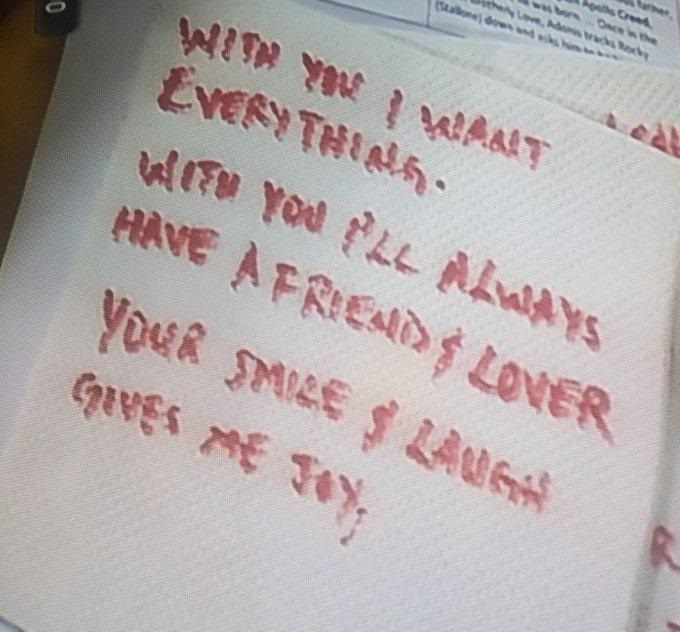 us father,
Apollo Creed,
was born ... Once in the
Brotherly Love, Adonis tracks Rocky
(Stallone) down and asks him to
WITH YOU I WANT
EVERYTHING.
WITH YOU I'LL ALWAYS
HAVE A FRIEND & LOVER
YOUR SMILE & LAUGH
GIVES ME JOY,